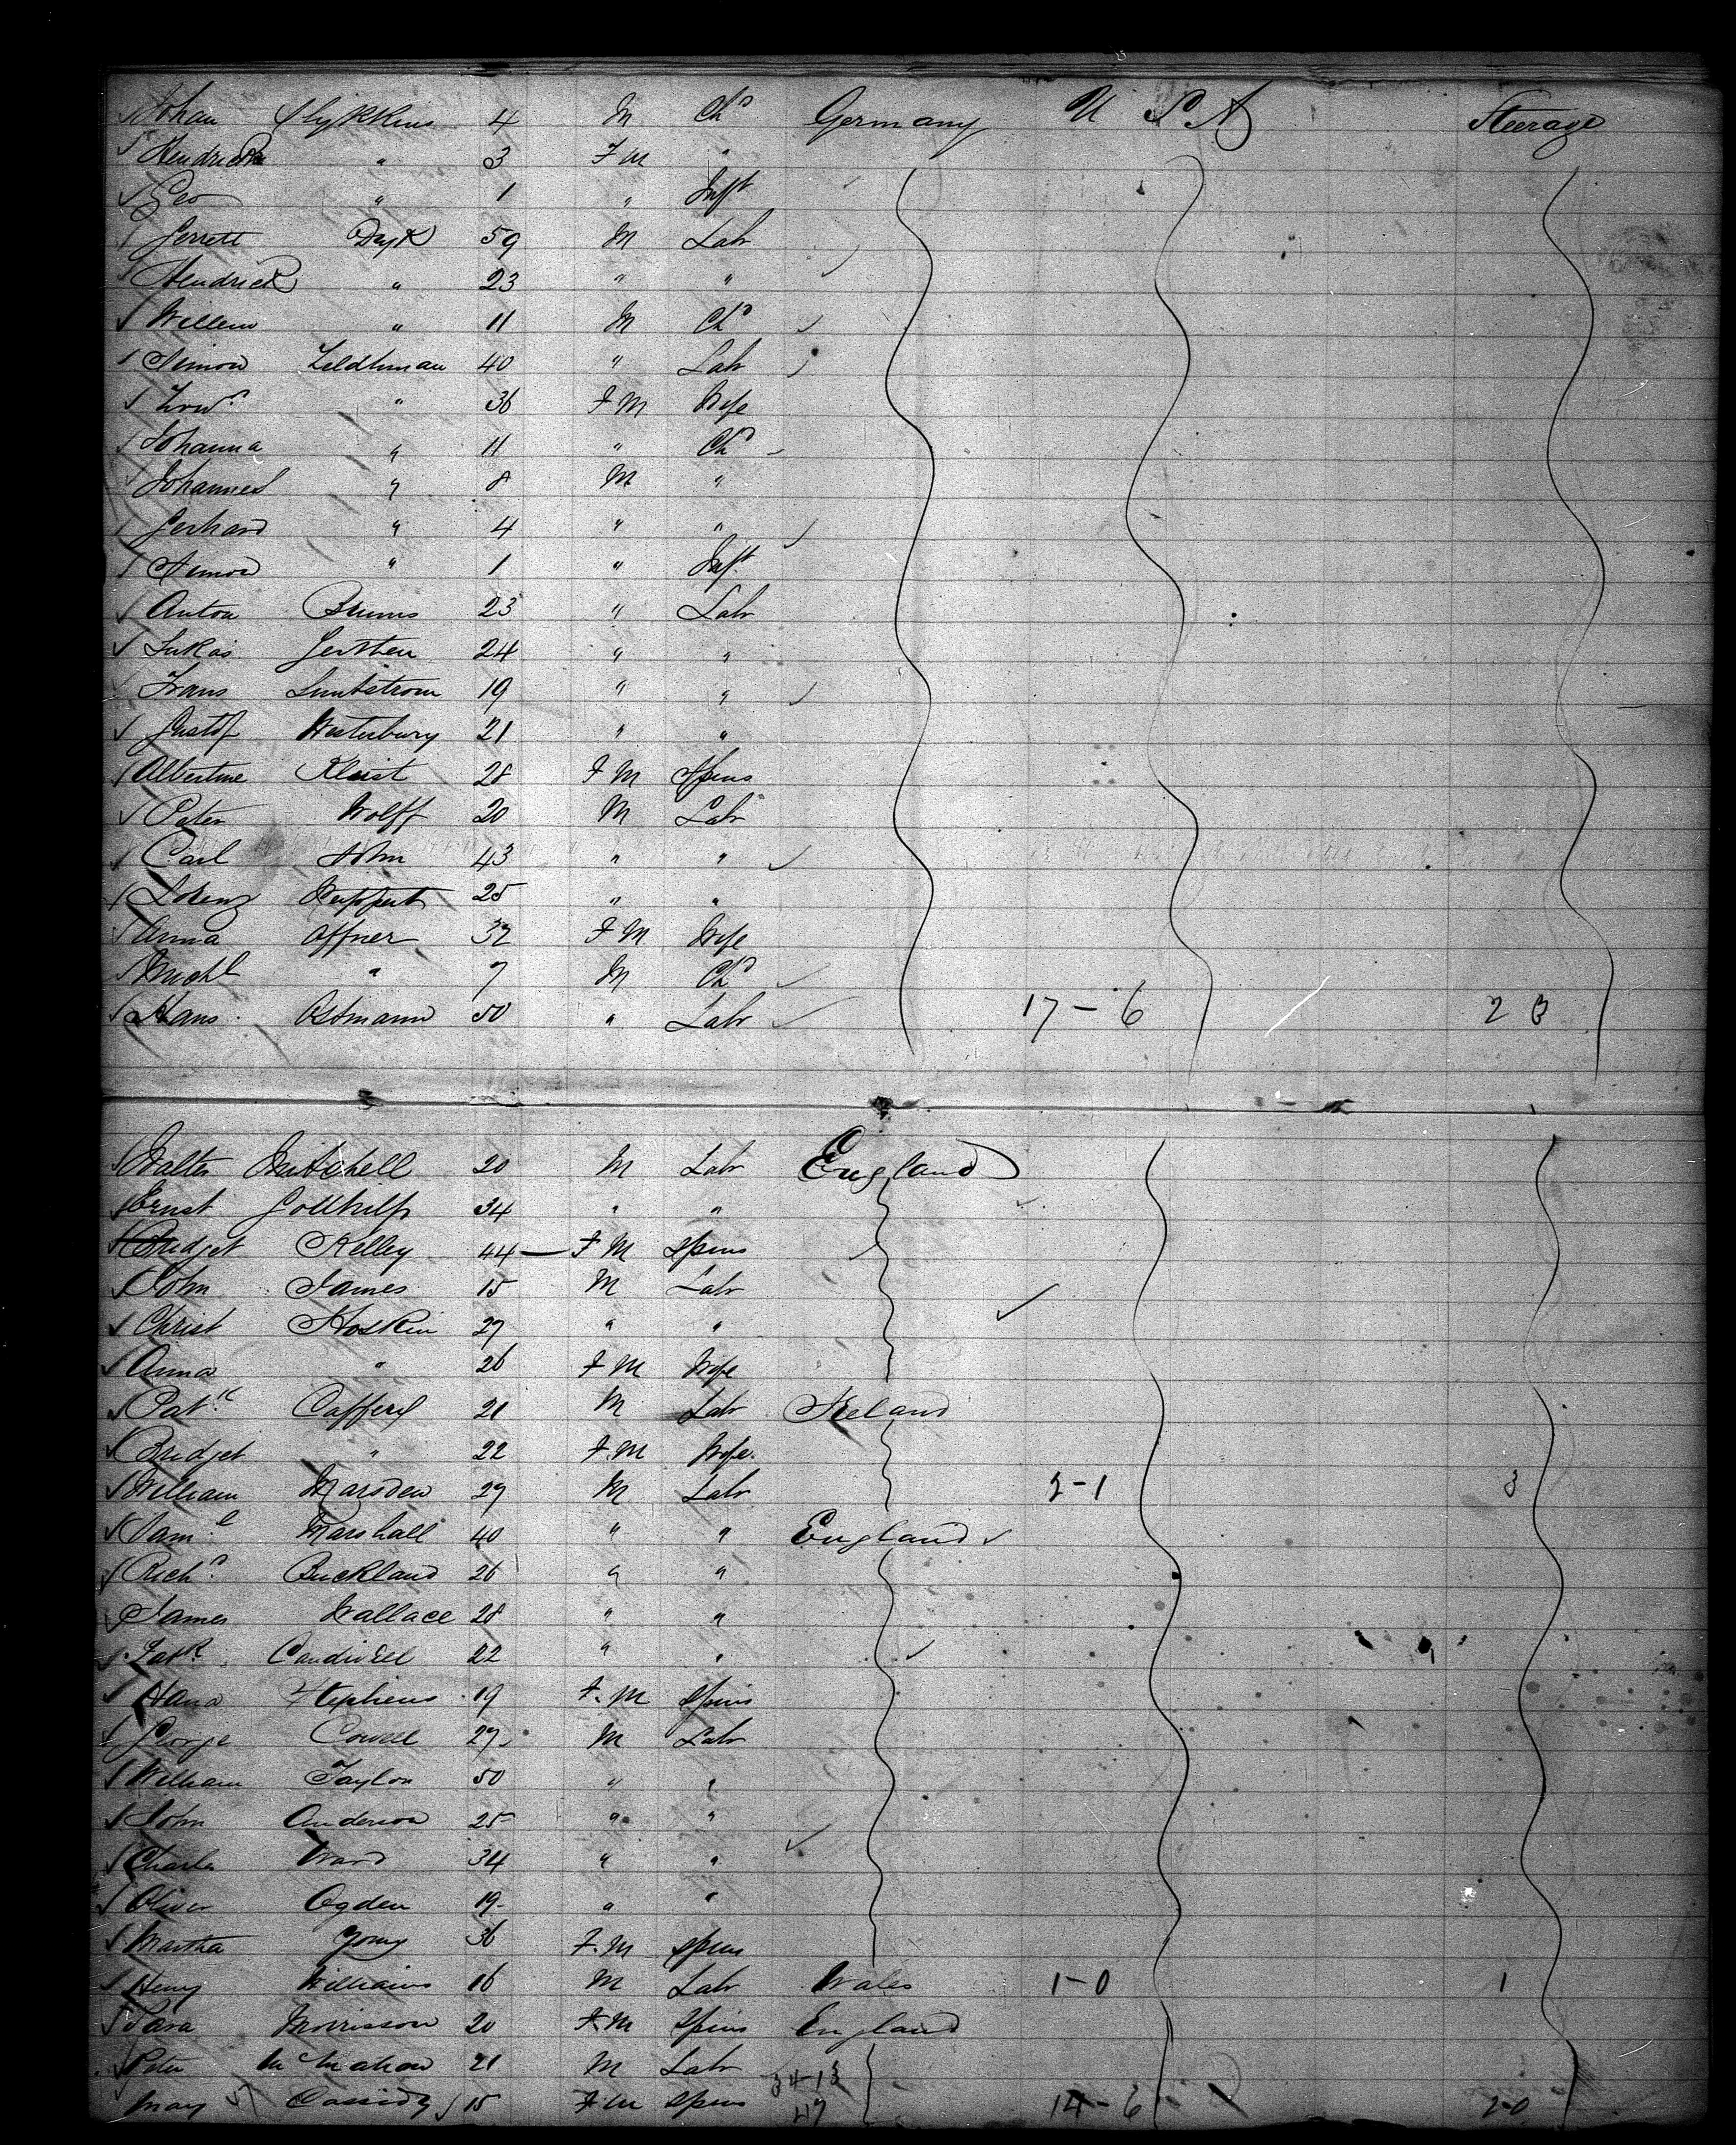 Johan Slykkins 4 M Chd Germany U S A Steerage
Hendrick " 3 F M "
Geo " 1 " Inft
Gerrett Dyk 59 M Labr
Hendrick " 23 " "
Willem " 11 M Chd
Simon Zeldhman 40 " Labr
" 36 F M Wife
Johanna " 11 " Chd
Johannes " 8 M "
Gerhard " 4 " "
Simon " 1 " Inft
Anton Bruns 23 " Labr
Lukas Gerthen 24 " "
Frans Lundstrom 19 " "
Gustof Westerburg 21 " "
Albertine Kleist 28 F M Spins
Peter Wolff 20 M Labr
Carl John 43 " "
Lorenz Ruppert 25 " "
Anna Offner 32 F M Wife
Michl " 7 M Chd
Hans Ostmann 50 " Labr 17 - 6 23
Walter Mitchell 20 M Labr England
Ernst Gollhilf 34 " "
Bridget Kelley 44 — F M Spins
John James 15 M Labr
Christ Hoskin 27 " "
Anna " 26 F M Wife
Patk Cafferel 21 M Labr Ireland
Bridget " 22 F. M Wife.
William Marsden 29 M Labr 2 - 1 3
Saml Marshall 40 " " England
Richd Buckland 26 " "
James Wallace 28 " "
Patk Caudwell 22 " "
Hana Stephens 19 F. M Spins
George Cowell 27 M Labr
William Taylor 50 " "
John Anderson 25 " "
Charles Ward 34 " "
Oliver Ogden 19 " "
Martha Young 36 F. M Spins
Henry Williams 16 M Labr Wales 1 - 0 1
Sara Morrisson 20 F. M Spins England
Peter McMahon 21 M Labr 34-13
Mary Cassidy 15 F M Spins 47 14 - 6 20